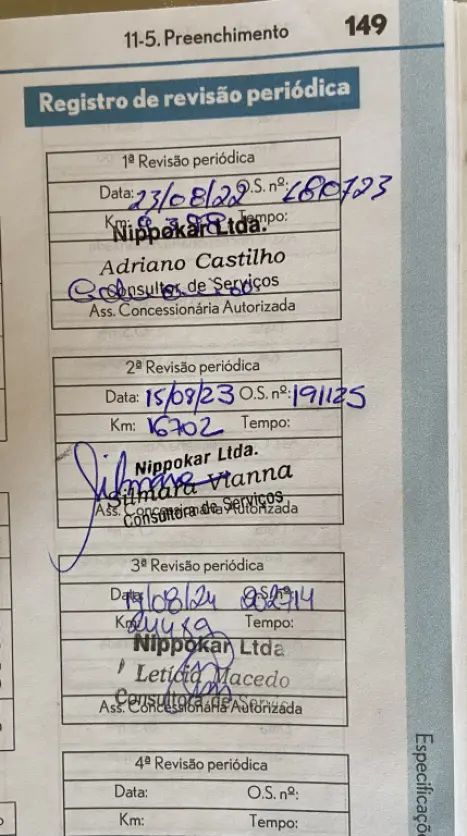 11-5. Preenchimento 149
Registro de revisão periódica
1ª Revisão periódica
Data: 23/08/22 O.S. nº:
Km: Tempo:
Nippokar Ltda.
Adriano Castilho
Consultor de Serviços
Ass. Concessionária Autorizada
2ª Revisão periódica
Data: 15/09/23 O.S. nº: 191125
Km: 16702 Tempo:
Nippokar Ltda.
Silmara Vianna
Consultora de Serviços
Ass. Concessionária Autorizada
3ª Revisão periódica
Data: 19/08/24 O.S. nº: 202714
Km: 24489 Tempo:
Nippokar Ltda
Letícia Macedo
Consultora de Serviços
Ass. Concessionária Autorizada
4ª Revisão periódica
Data: O.S. nº:
Km: Tempo:
Especificaçõ